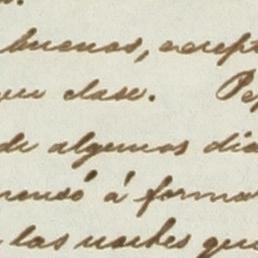 buenos, acept
clase. Pe
de algunos dia
menzó á forma
las noches que